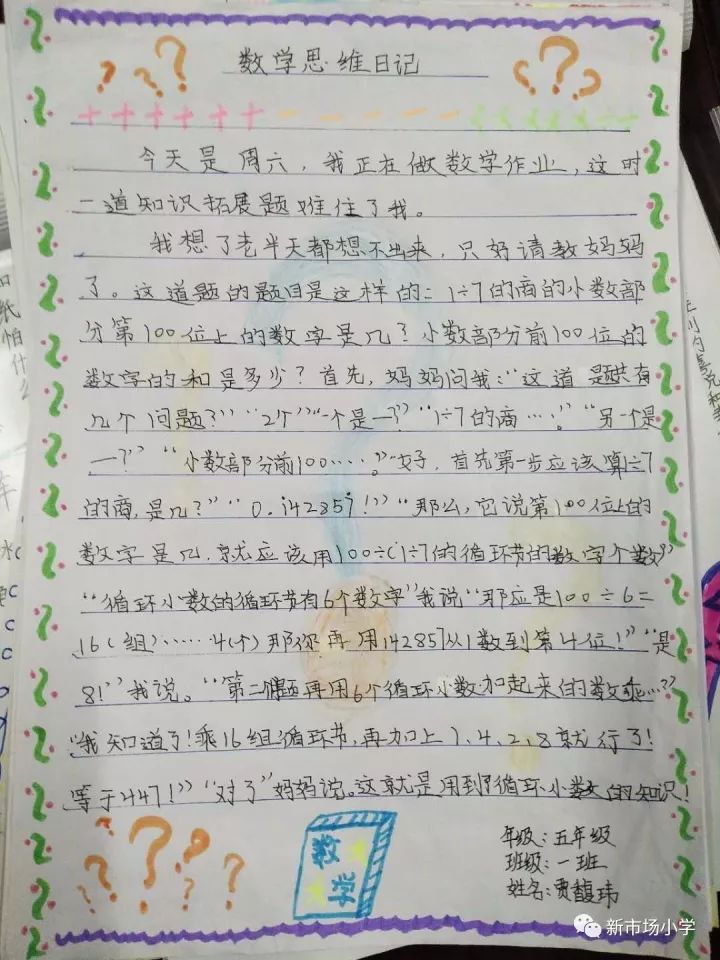 数学思维日记
今天是周六，我正在做数学作业，这时
一道知识拓展题难住了我。
我想了老半天都想不出来，只好请教妈妈
了。这道题的题目是这样的：1÷7的商的小数部
分第100位上的数字是几？小数部分前100位的
数字的和是多少？首先，妈妈问我：“这道题共有
几个问题？”“2个”“一个是一？”“1÷7的商…。”“另一个是
一？”“小数部分前100……。”“好，首先第一步应该算1÷7
的商，是几？”“0.142857！”“那么，它说第100位上的
数字是几，就应该用100÷(1÷7的循环节的数字个数)”
“循环小数的循环节有6个数字”我说“那应是100÷6=
16(组)……4(个)那你再用142857从1数到第4位！”“是
8！”我说。“第二个问题再用6个循环小数加起来的数乘…？”
“我知道了！乘16组循环节，再加上1、4、2、8就行了！
等于447！”“对了”妈妈说。这就是用到了循环小数的知识！
数学
年级：五年级
班级：一班
姓名：贾馥玮
新市场小学